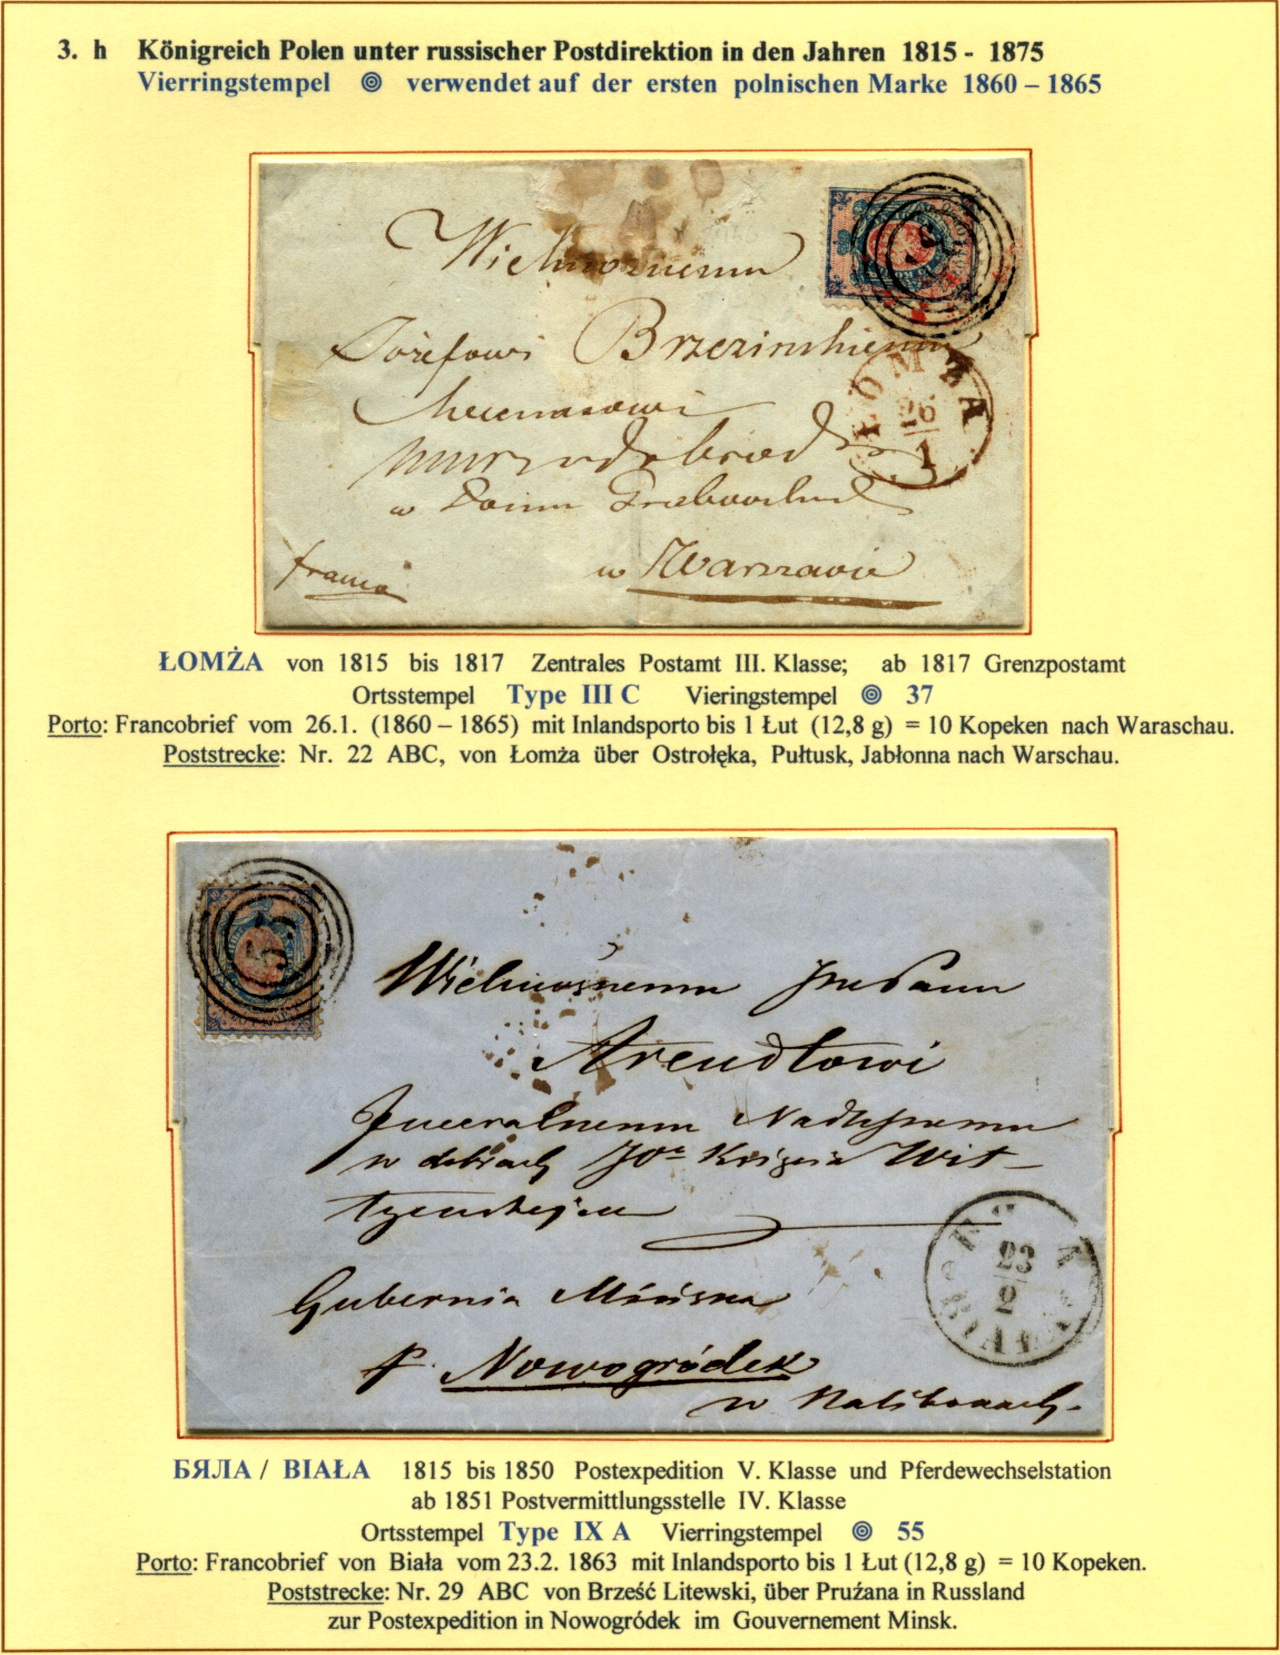 3. h Königreich Polen unter russischer Postdirektion in den Jahren 1815 - 1875
Vierringstempel verwendet auf der ersten polnischen Marke 1860 – 1865
Wielmożnemu
Józefowi Brzezinskiemu
w Domu Grabowskich
w Warszawie
franco
ŁOMŻA
26
1
ŁOMŻA von 1815 bis 1817 Zentrales Postamt III. Klasse; ab 1817 Grenzpostamt
Ortsstempel Type III C Vieringstempel 37
Porto: Francobrief vom 26.1. (1860 – 1865) mit Inlandsporto bis 1 Łut (12,8 g) = 10 Kopeken nach Waraschau.
Poststrecke: Nr. 22 ABC, von Łomża über Ostrołęka, Pułtusk, Jabłonna nach Warschau.
55
Wielmożnemu
Arendtowi
Jeneralnemu
w dobrach Księcia Wit-
Gubernia Mińska
p. Nowogródek
w
23
2
BIAŁA
БЯЛА / BIAŁA 1815 bis 1850 Postexpedition V. Klasse und Pferdewechselstation
ab 1851 Postvermittlungsstelle IV. Klasse
Ortsstempel Type IX A Vierringstempel 55
Porto: Francobrief von Biała vom 23.2. 1863 mit Inlandsporto bis 1 Łut (12,8 g) = 10 Kopeken.
Poststrecke: Nr. 29 ABC von Brześć Litewski, über Pruźana in Russland
zur Postexpedition in Nowogródek im Gouvernement Minsk.